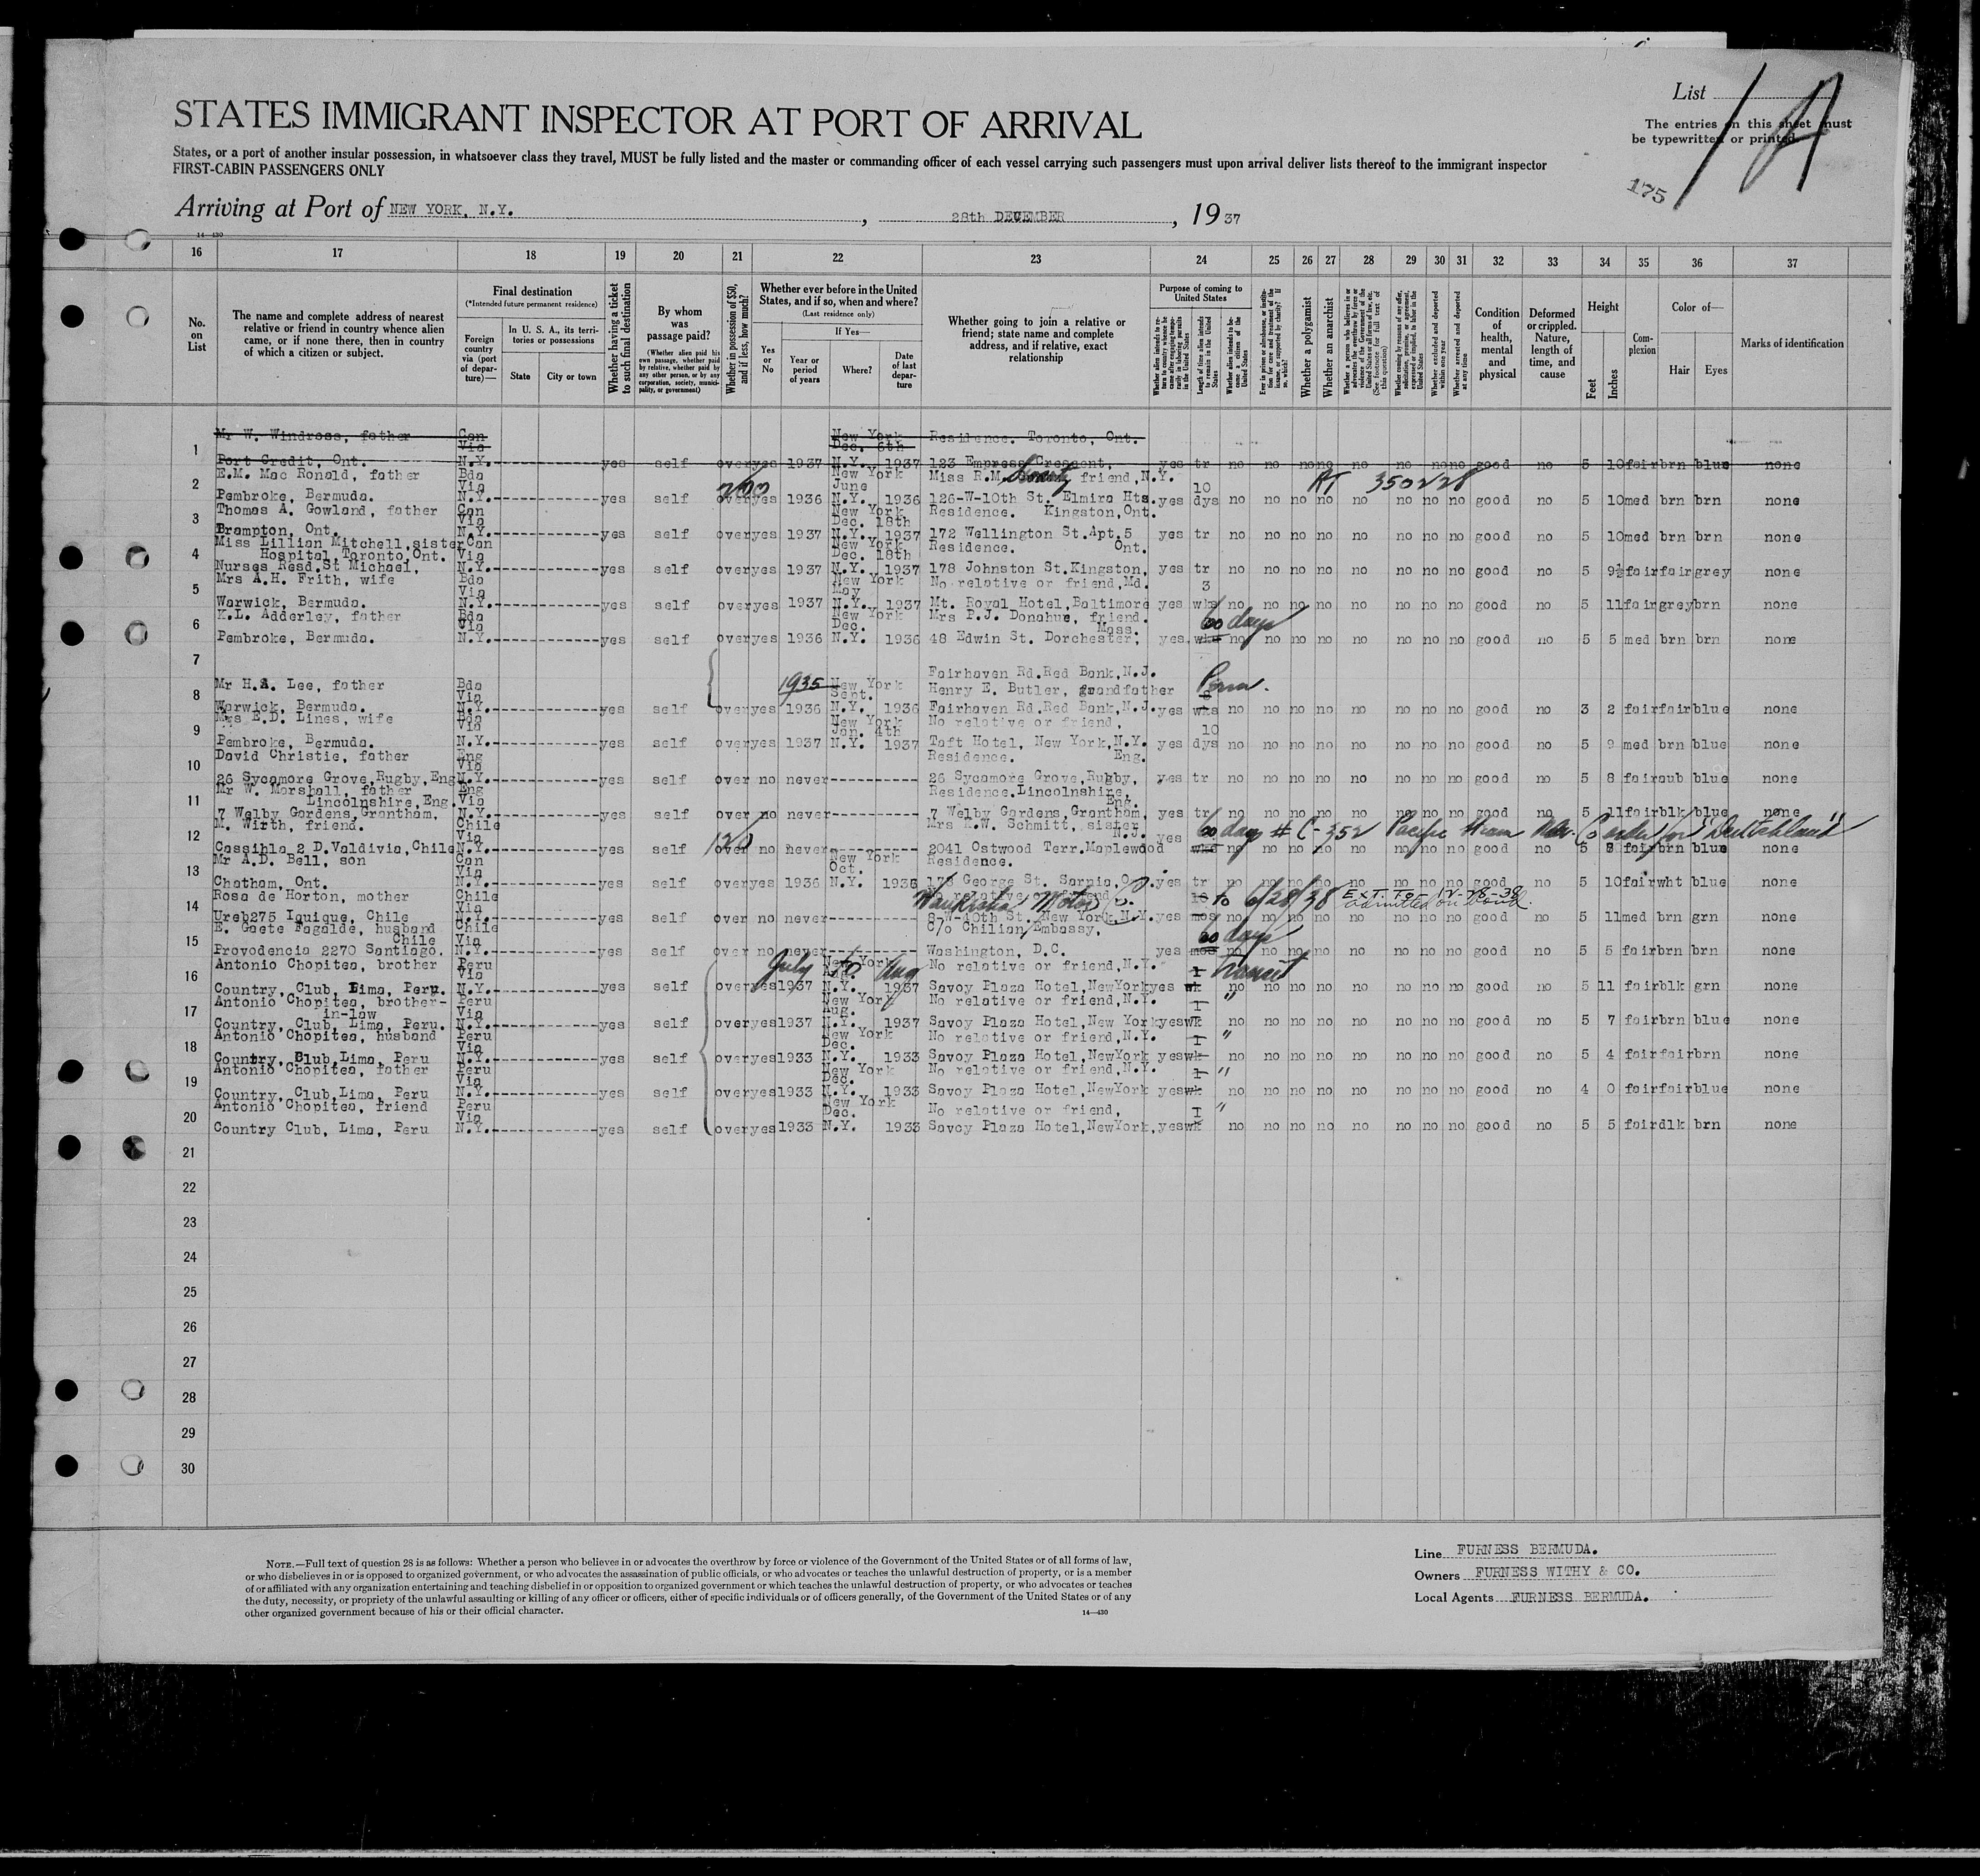 List 1A
STATES IMMIGRANT INSPECTOR AT PORT OF ARRIVAL
The entries on this sheet must
be typewritten or printed.
States, or a port of another insular possession, in whatsoever class they travel, MUST be fully listed and the master or commanding officer of each vessel carrying such passengers must upon arrival deliver lists thereof to the immigrant inspector
FIRST-CABIN PASSENGERS ONLY
175
Arriving at Port of NEW YORK, N.Y. , 28th DECEMBER , 1937
14—430
16 17 18 19 20 21 22 23 24 25 26 27 28 29 30 31 32 33 34 35 36 37
No. on List
The name and complete address of nearest relative or friend in country whence alien came, or if none there, then in country of which a citizen or subject.
Final destination
(*Intended future permanent residence)
Foreign country via (port of departure)—
In U. S. A., its territories or possessions
State City or town
Whether having a ticket to such final destination
By whom was passage paid?
(Whether alien paid his own passage, whether paid by relative, whether paid by any other person, or by any corporation, society, municipality, or government)
Whether in possession of $50, and if less, how much?
Whether ever before in the United States, and if so, when and where?
(Last residence only)
Yes or No
If Yes—
Year or period of years
Where?
Date of last departure
Whether going to join a relative or friend; state name and complete address, and if relative, exact relationship
Purpose of coming to United States
Whether a polygamist
Whether an anarchist
Condition of health, mental and physical
Deformed or crippled. Nature, length of time, and cause
Height
Feet Inches
Complexion
Color of—
Hair Eyes
Marks of identification
1 Mr W. Windross, father Can Via New York Dec. 8th Residence. Toronto, Ont.
Port Credit, Ont. N.Y. yes self over yes 1937 N.Y. 1937 123 Empress Crescent, yes tr no no no no no no no no good no 5 10 fair brn blue none
2 E.M. Mac Ronald, father Bda Via New York June Miss R.M. friend, N.Y. 10 RT 350228
200
Pembroke, Bermuda. N.Y. yes self over yes 1936 N.Y. 1936 126-W-10th St. Elmira Hts. yes dys no no no no no no no no good no 5 10 med brn brn none
3 Thomas A. Gowland, father Can Via New York Dec. 18th Residence. Kingston, Ont.
Brampton, Ont. N.Y. yes self over yes 1937 N.Y. 1937 172 Wellington St. Apt.5 yes tr no no no no no no no no good no 5 10 med brn brn none
4 Miss Lillian Mitchell, sister Can Via New York Dec. 18th Residence. Ont.
Hospital, Toronto, Ont.
Nurses Resd. St Michael, N.Y. yes self over yes 1937 N.Y. 1937 178 Johnston St. Kingston, yes tr no no no no no no no no good no 5 9½ fair fair grey none
5 Mrs A.H. Frith, wife Bda Via New York May No relative or friend, Md. 3
Warwick, Bermuda. N.Y. yes self over yes 1937 N.Y. 1937 Mt. Royal Hotel, Baltimore yes wks no no no no no no no no good no 5 11 fair grey brn none
6 K.L. Adderley, father Bda Via New York Dec. Mrs P.J. Donahue, friend. Mass. 60 days
Pembroke, Bermuda. N.Y. yes self over yes 1936 N.Y. 1936 48 Edwin St. Dorchester, yes wks no no no no no no no no good no 5 5 med brn brn none
7
Fairhaven Rd. Red Bank, N.J.
8 Mr H.A. Lee, father Bda Via 1935 New York Sept. Henry E. Butler, grandfather Perm.
Warwick, Bermuda. N.Y. yes self over yes 1936 N.Y. 1936 Fairhaven Rd. Red Bank, N.J. yes wks no no no no no no no no good no 3 2 fair fair blue none
9 Mrs E.D. Lines, wife Bda Via New York Jan. 4th No relative or friend, 10
Pembroke, Bermuda. N.Y. yes self over yes 1937 N.Y. 1937 Taft Hotel, New York, N.Y. yes dys no no no no no no no no good no 5 9 med brn blue none
10 David Christie, father Eng Via Residence. Eng.
26 Sycamore Grove, Rugby, Eng N.Y. yes self over no never 26 Sycamore Grove, Rugby, yes tr no no no no no no no no good no 5 8 fair aub blue none
11 Mr W. Marshall, father Eng Via Residence. Lincolnshire, Eng.
Lincolnshire, Eng.
7 Welby Gardens, Grantham, N.Y. yes self over no never 7 Welby Gardens, Grantham, yes tr no no no no no no no no good no 5 11 fair blk blue none
12 M. Wirth, friend. Chile Via 120 Mrs K.W. Schmitt, sister N.J. yes 60 days # C-352 Pacific Steam Nav. Co order for "Deutschland"
Cassilla 2 D. Valdivia, Chile N.Y. yes self over no never 2041 Ostwood Terr. Maplewood wks no no no no no no no no good no 5 8 fair brn blue none
13 Mr A.D. Bell, son Can Via New York Oct. Residence.
Chatham, Ont. N.Y. yes self over yes 1936 N.Y. 1936 178 George St. Sarnia, O. yes tr no no no no no no no no good no 5 10 fair wht blue none
14 Rosa de Horton, mother Chile Via to 6/28/38 EXT. TO- 12-28-38
Ureb275 Iquique, Chile N.Y. yes self over no never 8-W-40th St. New York, N.Y. yes mos no no no no no no no no good no 5 11 med brn grn none
15 E. Gaete Fagalde, husband Chile Via C/o Chilian Embassy, 60 days
Chile
Providencia 2270 Santiago. N.Y. yes self over no never Washington, D.C. yes mos no no no no no no no no good no 5 5 fair brn brn none
16 Antonio Chopitea, brother Peru Via July to Aug New York Aug. No relative or friend, N.Y. 1 transit
Country, Club, Lima, Peru. N.Y. yes self over yes 1937 N.Y. 1937 Savoy Plaza Hotel, NewYork yes wk no no no no no no no no good no 5 11 fair blk grn none
17 Antonio Chopitea, brother- Peru Via New York Aug. No relative or friend, N.Y. 1 "
in-law
Country, Club, Lima, Peru. N.Y. yes self over yes 1937 N.Y. 1937 Savoy Plaza Hotel, New York yes wk no no no no no no no no good no 5 7 fair brn blue none
18 Antonio Chopitea, husband Peru Via New York Dec. No relative or friend, N.Y. 1 "
Country, Club, Lima, Peru N.Y. yes self over yes 1933 N.Y. 1933 Savoy Plaza Hotel, NewYork yes wk no no no no no no no no good no 5 4 fair fair brn none
19 Antonio Chopitea, father Peru Via New York Dec. No relative or friend, N.Y. 1 "
Country, Club, Lima, Peru N.Y. yes self over yes 1933 N.Y. 1933 Savoy Plaza Hotel, NewYork yes wk no no no no no no no no good no 4 0 fair fair blue none
20 Antonio Chopitea, friend Peru Via New York Dec. No relative or friend, 1 "
Country Club, Lima, Peru N.Y. yes self over yes 1933 N.Y. 1933 Savoy Plaza Hotel, NewYork, yes wk no no no no no no no no good no 5 5 fair dlk brn none
21
22
23
24
25
26
27
28
29
30
NOTE.—Full text of question 28 is as follows: Whether a person who believes in or advocates the overthrow by force or violence of the Government of the United States or of all forms of law,
or who disbelieves in or is opposed to organized government, or who advocates the assassination of public officials, or who advocates or teaches the unlawful destruction of property, or is a member
of or affiliated with any organization entertaining and teaching disbelief in or opposition to organized government or which teaches the unlawful destruction of property, or who advocates or teaches
the duty, necessity, or propriety of the unlawful assaulting or killing of any officer or officers, either of specific individuals or of officers generally, of the Government of the United States or of any
other organized government because of his or their official character.
14—430
Line FURNESS BERMUDA.
Owners FURNESS WITHY & CO.
Local Agents FURNESS BERMUDA.